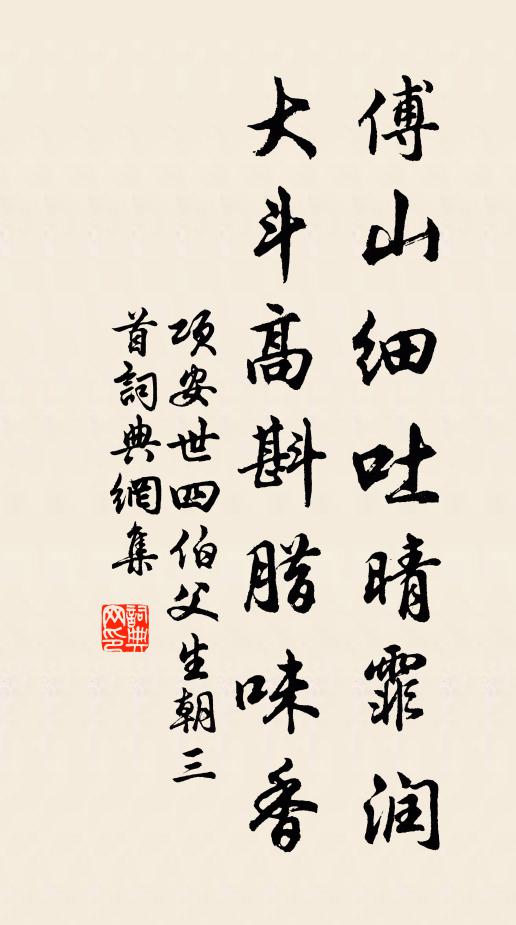 傅山细吐晴霏润
大斗高斟腊味香
项安世四伯父生朝三
首詞典網集
詞典
网印